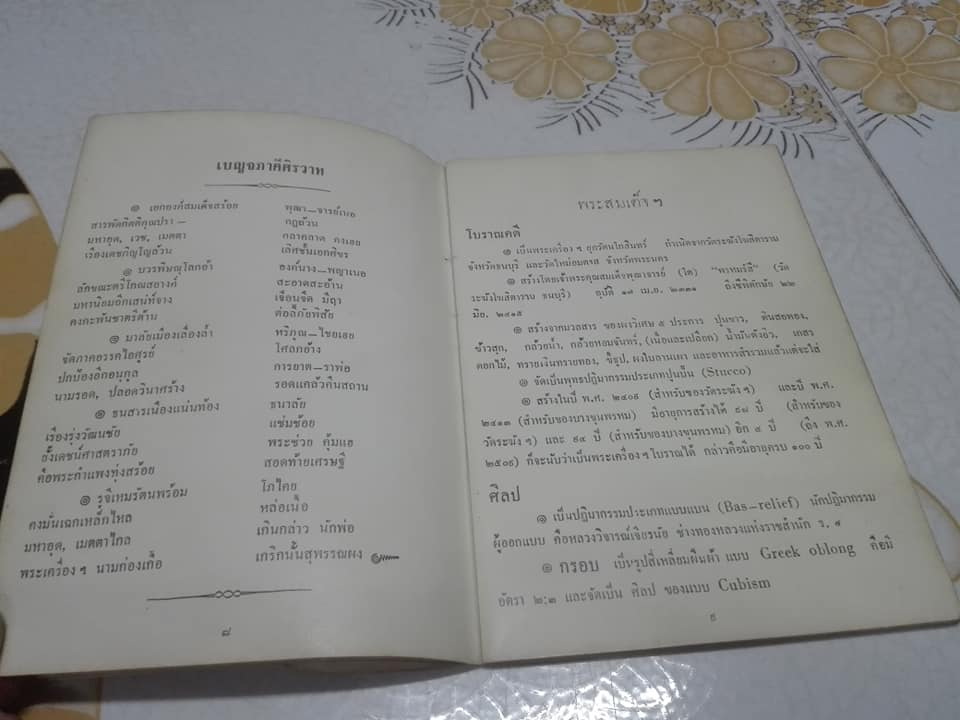 เบญจภาคีศิรวาท
๑ เอกองค์สมเด็จสร้อย พุฒา—จารย์เอย
สารพัดกิตติคุณปรา— กฏถ้วน
มหาอุด, เวช, เมตตา กลาคลาด คงเอย
เรืองเดชภิญโญล้วน เลิศชั้นเอกศิขร
๑ บวรพิษณุโลกอ้า องค์นาง—พญาเนอ
ลักขณะตรีโกณสอางค์ สะอาดสะอ้าน
มหานิยมอีกเสน่ห์จาง เจือนจืด มีฤา
คงกะพันชาตรีต้าน ต่อสู้ภัยพัสัย
๑ มาลัยเมืองเลื่องล้ำ หริภุญ—ไชยเอย
ขัตภาคอรรคไอศูรย์ โศลกอ้าง
ปกป้องอีกอนุกูล การยาต—ราพ่อ
นามรอด, ปลอดวินาศร้าง รอดแคล้วคืนสถาน
๑ ธนสารเนืองแน่นท้อง ธนาลัย
เรืองรุ่งวัฒนชัย แช่มช้อย
ยั้งเดชน์ศาสตราภัย พระช่วย คุ้มแฮ
คือพระกำแพงทุ่งสร้อย สอดท้ายเศรษฐี
๑ รุจิเหมรัตนพร้อม โภไคย
คงมั่นเฉกเหล็กไหล หล่อเนื้อ
มหาอุด, เมตตาไกล เกินกล่าว นักพ่อ
พระเครื่อง ฯ นามก่องเกื้อ เกริกนั้นสุพรรณผง
๘
พระสมเด็จ ฯ
โบราณคดี
๑ เป็นพระเครื่อง ฯ ยุครัตนโกสินทร์ กำเนิดจากวัดระฆังโฆสิตาราม
จังหวัดธนบุรี และวัดใหม่อมตรส จังหวัดพระนคร
๑ สร้างโดยเจ้าพระคุณสมเด็จพุฒาจารย์ (โต) “พรหมรังสี” (วัด
ระฆังโฆสิตาราม ธนบุรี) อุบัติ ๑๗ เม.ย. ๒๓๓๑ ถึงชีพิตักษัย ๒๒
มิย. ๒๔๑๕
๑ สร้างจากมวลสาร ของผงวิเศษ ๕ ประการ ปูนขาว, ดินสอพอง,
ข้าวสุก, กล้วยน้ำ, กล้วยหอมจันทร์, (เนื้อและเปลือก) น้ำมันตั้งอิ้ว, เกสร
ดอกไม้, ทรายเงินทรายทอง, ขี้ธูป, ผงใบลานเผา และอาหารสำรวมแล้วแต่จะใส่
๑ จัดเป็นพุทธปฏิมากรรมประเภทปูนปั้น (Stucco)
๑ สร้างในปี พ.ศ. ๒๔๐๙ (สำหรับของวัดระฆัง ฯ) และปี พ.ศ.
๒๔๑๓ (สำหรับของบางขุนพรหม) มีอายุการสร้างได้ ๙๘ ปี (สำหรับของ
วัดระฆัง ฯ) และ ๙๔ ปี (สำหรับของบางขุนพรหม) อีก ๕ ปี (ถึง พ.ศ.
๒๕๐๙) ก็จะนับว่าเป็นพระเครื่อง ฯ โบราณได้ กล่าวคือมีอายุครบ ๑๐๐ ปี
ศิลป
๑ เป็นปฏิมากรรมประเภทแบบแบน (Bas-relief) นักปฏิมากรรม
ผู้ออกแบบ คือหลวงวิจารณ์เจียรนัย ช่างทองหลวงแห่งราชสำนัก ร. ๔
๑ กรอบ เป็นรูปสี่เหลี่ยมผืนผ้า แบบ Greek oblong คือมี
อัตรา ๒:๓ และจัดเป็น ศิลป ของแบบ Cubism
๙